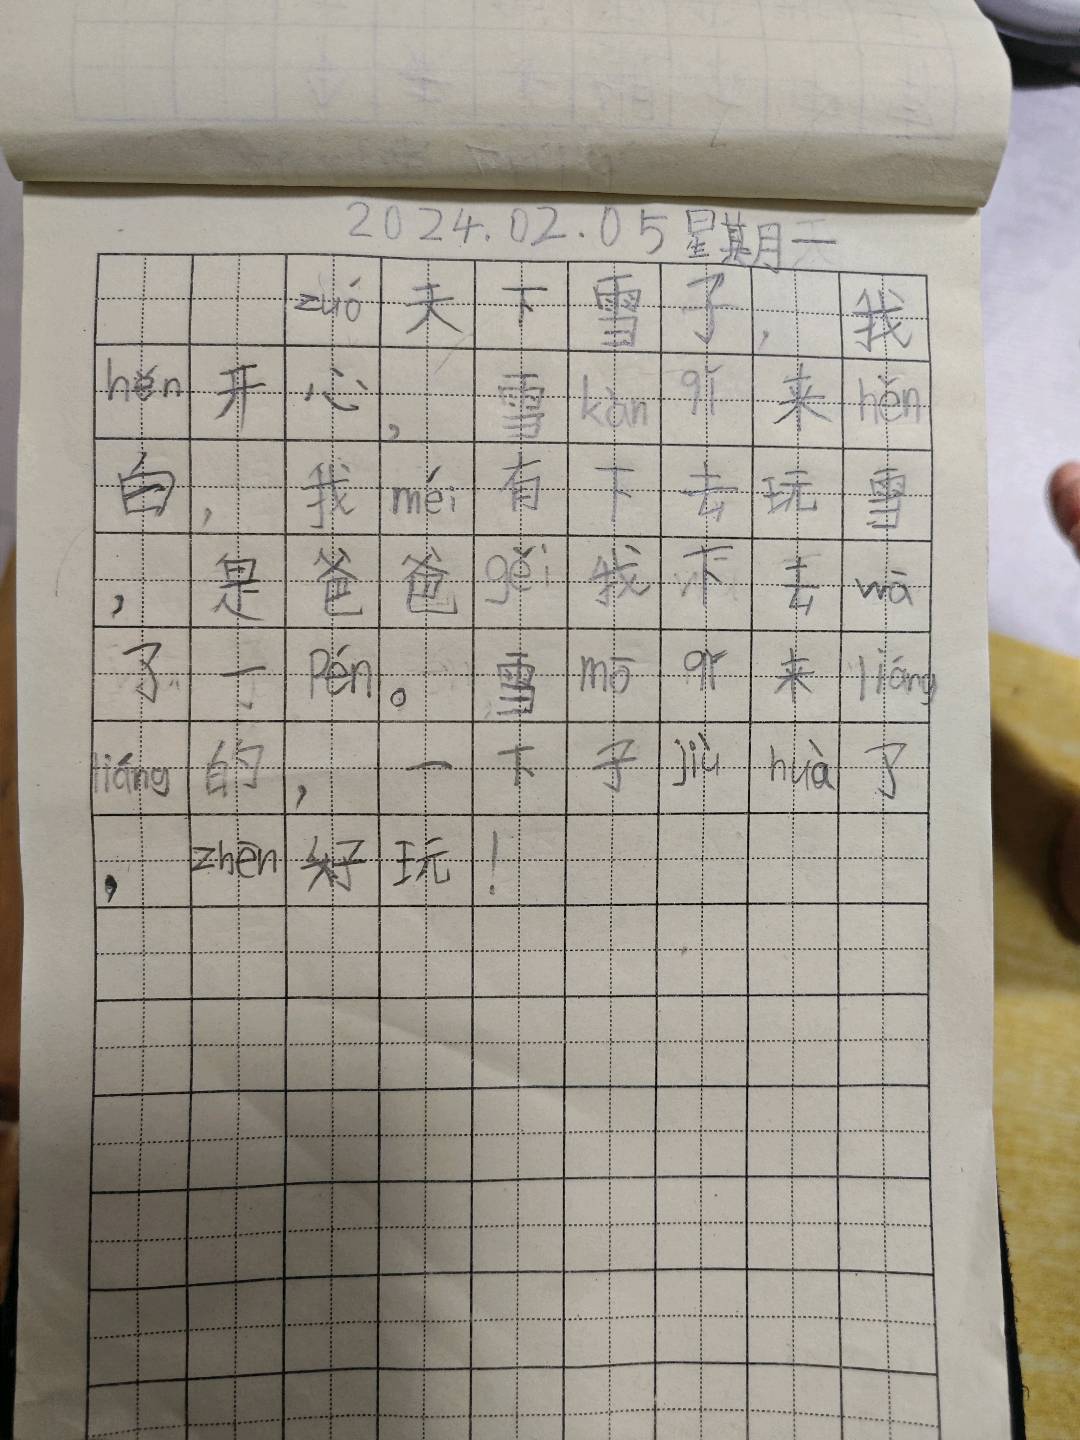 2024.02.05星期一
zuó天下雪子，我
hěn开心，雪kàn qǐ来hěn
白，我méi有下去玩雪
，是爸爸gěi我下去wā
了一Pén。雪mō qǐ来liáng
liáng的，一下子jiù huà了
，zhēn好玩！